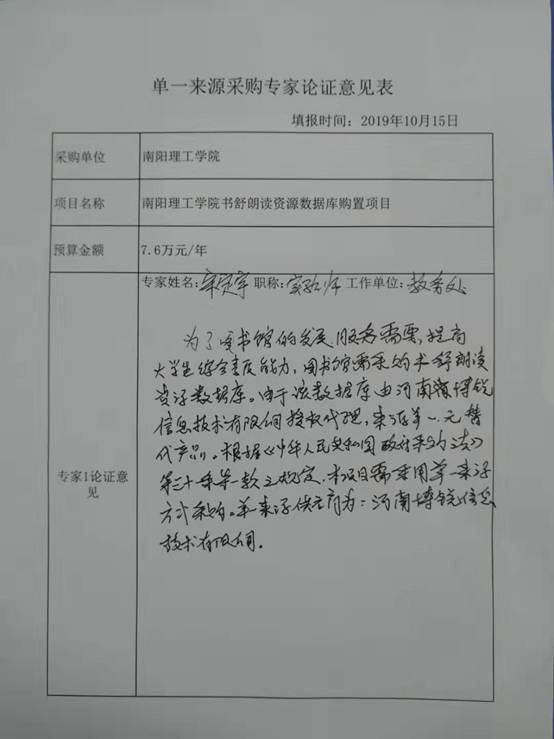 单一来源采购专家论证意见表
填报时间：2019年10月15日
采购单位 南阳理工学院
项目名称 南阳理工学院书舒朗读资源数据库购置项目
预算金额 7.6万元/年
专家姓名： 职称：实验师 工作单位：教务处
专家1论证意见
为了图书馆的发展、服务需要，提高
大学生综合素质能力，图书馆需采购书舒朗读
资源数据库。由于该数据库由河南博锐
信息技术有限公司授权代理，来源单一，无替
代产品。根据《中华人民共和国政府采购法》
第三十一条第一款之规定，本项目需要用单一来源
方式采购。单一来源供应商为：河南博锐信息
技术有限公司。